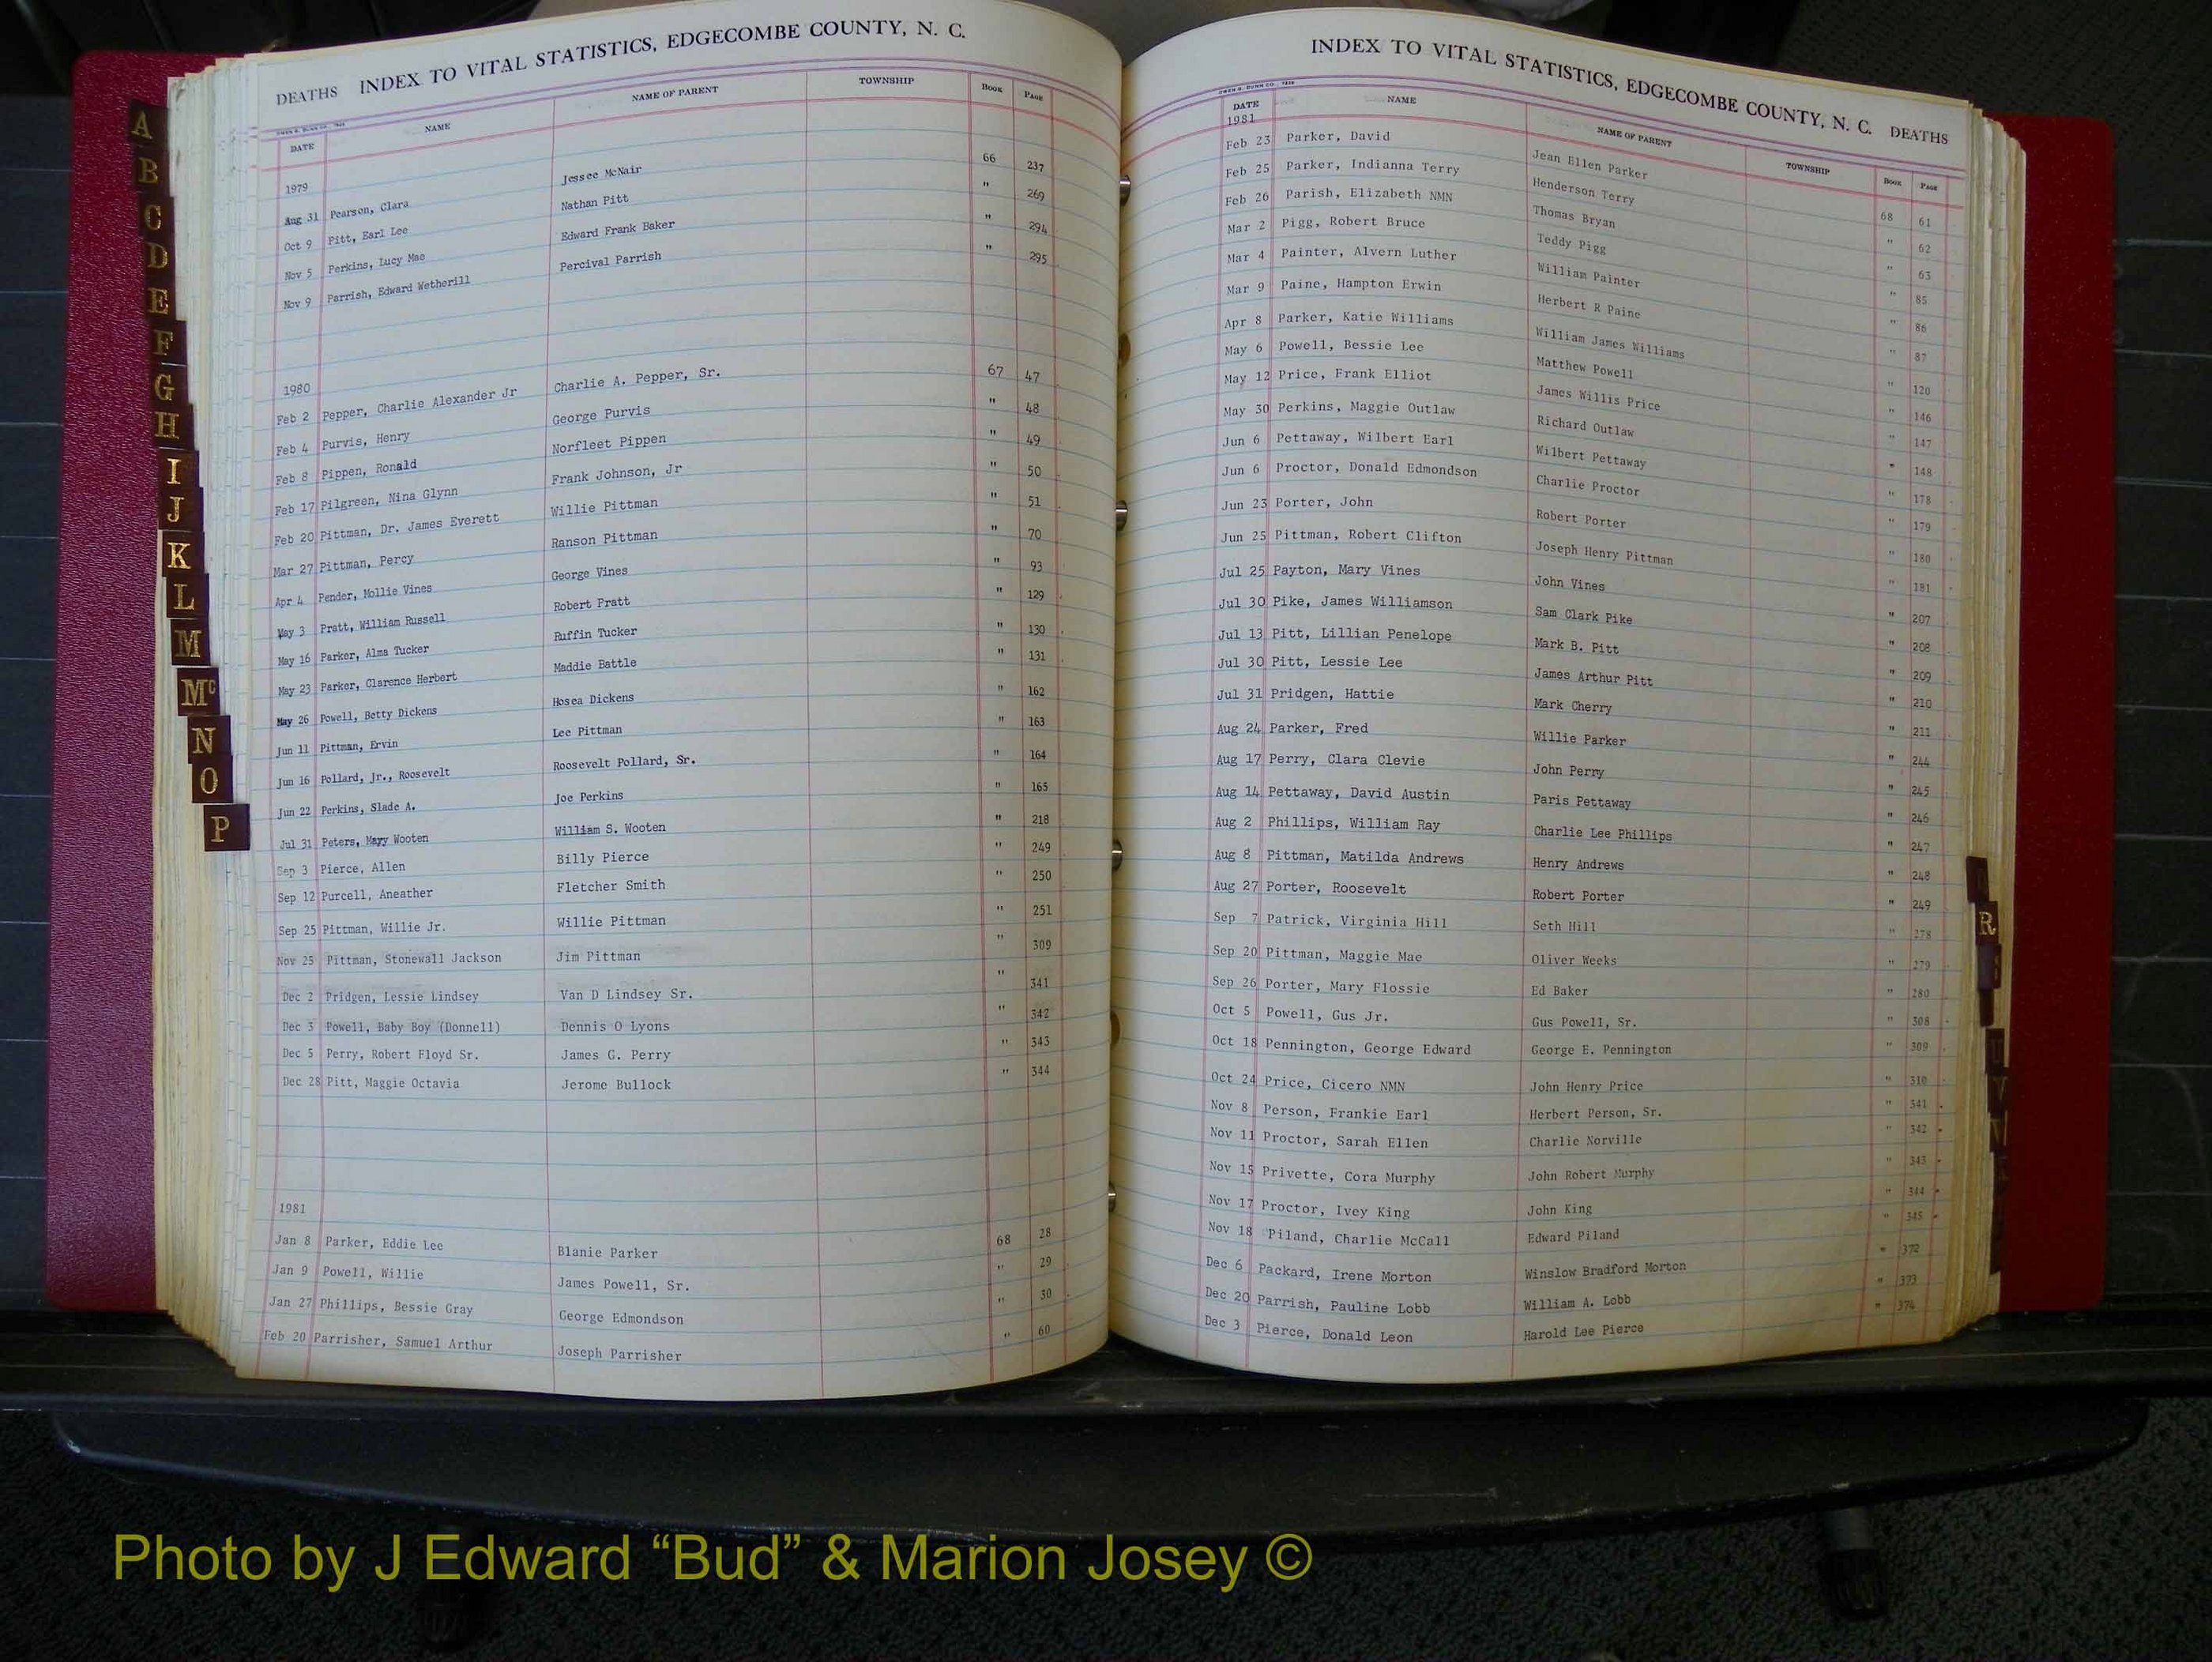 DEATHS INDEX TO VITAL STATISTICS, EDGECOMBE COUNTY, N. C.
DATE NAME NAME OF PARENT TOWNSHIP BOOK PAGE
1979
Aug 31 Pearson, Clara Jessee McNair 66 237
Oct 9 Pitt, Earl Lee Nathan Pitt " 269
Nov 5 Perkins, Lucy Mae Edward Frank Baker " 294
Nov 9 Parrish, Edward Wetherill Percival Parrish " 295
1980
Feb 2 Pepper, Charlie Alexander Jr Charlie A. Pepper, Sr. 67 47
Feb 4 Purvis, Henry George Purvis " 48
Feb 8 Pippen, Ronald Norfleet Pippen " 49
Feb 17 Pilgreen, Nina Glynn Frank Johnson, Jr " 50
Feb 20 Pittman, Dr. James Everett Willie Pittman " 51
Mar 27 Pittman, Percy Ranson Pittman " 70
Apr 4 Pender, Mollie Vines George Vines " 93
May 3 Pratt, William Russell Robert Pratt " 129
May 16 Parker, Alma Tucker Ruffin Tucker " 130
May 23 Parker, Clarence Herbert Maddie Battle " 131
May 26 Powell, Betty Dickens Hosea Dickens " 162
Jun 11 Pittman, Ervin Lee Pittman " 163
Jun 16 Pollard, Jr., Roosevelt Roosevelt Pollard, Sr. " 164
Jun 22 Perkins, Slade A. Joe Perkins " 165
Jul 31 Peters, Mary Wooten William S. Wooten " 218
Sep 3 Pierce, Allen Billy Pierce " 249
Sep 12 Purcell, Aneather Fletcher Smith " 250
Sep 25 Pittman, Willie Jr. Willie Pittman " 251
Nov 25 Pittman, Stonewall Jackson Jim Pittman " 309
Dec 2 Pridgen, Lessie Lindsey Van D Lindsey Sr. " 341
Dec 3 Powell, Baby Boy (Donnell) Dennis O Lyons " 342
Dec 5 Perry, Robert Floyd Sr. James G. Perry " 343
Dec 28 Pitt, Maggie Octavia Jerome Bullock " 344
1981
Jan 8 Parker, Eddie Lee Blanie Parker 68 28
Jan 9 Powell, Willie James Powell, Sr. " 29
Jan 27 Phillips, Bessie Gray George Edmondson " 30
Feb 20 Parrisher, Samuel Arthur Joseph Parrisher " 60
INDEX TO VITAL STATISTICS, EDGECOMBE COUNTY, N. C. DEATHS
DATE NAME NAME OF PARENT TOWNSHIP BOOK PAGE
1981
Feb 23 Parker, David Jean Ellen Parker 68 61
Feb 25 Parker, Indianna Terry Henderson Terry " 62
Feb 26 Parish, Elizabeth NMN Thomas Bryan " 63
Mar 2 Pigg, Robert Bruce Teddy Pigg " 85
Mar 4 Painter, Alvern Luther William Painter " 86
Mar 9 Paine, Hampton Erwin Herbert R Paine " 87
Apr 8 Parker, Katie Williams William James Williams " 120
May 6 Powell, Bessie Lee Matthew Powell " 146
May 12 Price, Frank Elliot James Willis Price " 147
May 30 Perkins, Maggie Outlaw Richard Outlaw " 148
Jun 6 Pettaway, Wilbert Earl Wilbert Pettaway " 178
Jun 6 Proctor, Donald Edmondson Charlie Proctor " 179
Jun 23 Porter, John Robert Porter " 180
Jun 25 Pittman, Robert Clifton Joseph Henry Pittman " 181
Jul 25 Payton, Mary Vines John Vines " 207
Jul 30 Pike, James Williamson Sam Clark Pike " 208
Jul 13 Pitt, Lillian Penelope Mark B. Pitt " 209
Jul 30 Pitt, Lessie Lee James Arthur Pitt " 210
Jul 31 Pridgen, Hattie Mark Cherry " 211
Aug 24 Parker, Fred Willie Parker " 244
Aug 17 Perry, Clara Clevie John Perry " 245
Aug 14 Pettaway, David Austin Paris Pettaway " 246
Aug 2 Phillips, William Ray Charlie Lee Phillips " 247
Aug 8 Pittman, Matilda Andrews Henry Andrews " 248
Aug 27 Porter, Roosevelt Robert Porter " 249
Sep 7 Patrick, Virginia Hill Seth Hill " 278
Sep 20 Pittman, Maggie Mae Oliver Weeks " 279
Sep 26 Porter, Mary Flossie Ed Baker " 280
Oct 5 Powell, Gus Jr. Gus Powell, Sr. " 308
Oct 18 Pennington, George Edward George E. Pennington " 309
Oct 24 Price, Cicero NMN John Henry Price " 310
Nov 8 Person, Frankie Earl Herbert Person, Sr. " 341
Nov 11 Proctor, Sarah Ellen Charlie Norville " 342
Nov 15 Privette, Cora Murphy John Robert Murphy " 343
Nov 17 Proctor, Ivey King John King " 344
Nov 18 Piland, Charlie McCall Edward Piland " 345
Dec 6 Packard, Irene Morton Winslow Bradford Morton " 372
Dec 20 Parrish, Pauline Lobb William A. Lobb " 373
Dec 3 Pierce, Donald Leon Harold Lee Pierce " 374
A
B
C
D
E
F
G
H
I
J
K
L
M
Mc
N
O
P
R
U
V
Photo by J Edward “Bud” & Marion Josey ©